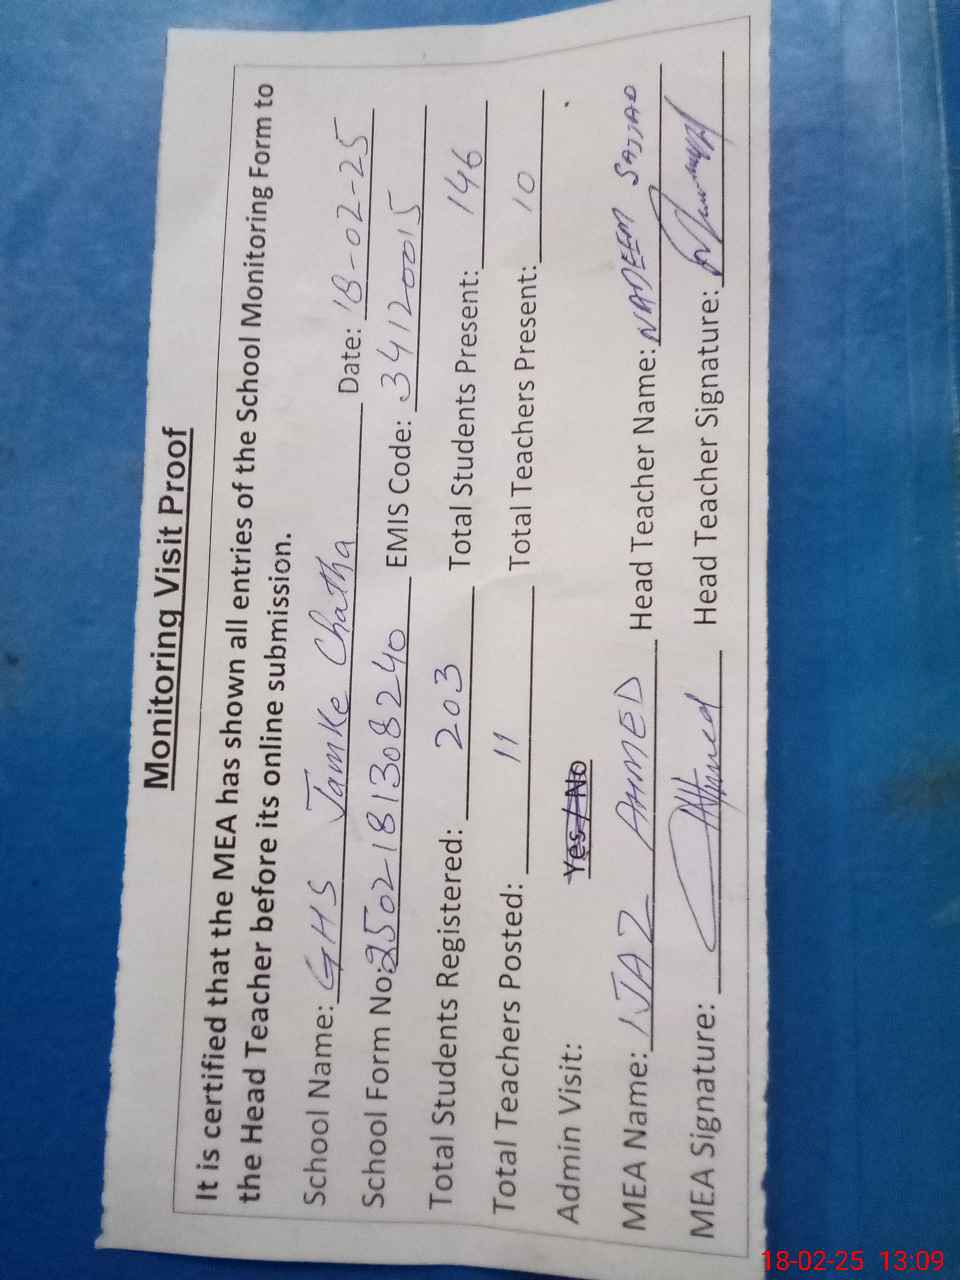 Monitoring Visit Proof
It is certified that the MEA has shown all entries of the School Monitoring Form to
the Head Teacher before its online submission.
School Name: GHS Jamke Chatha Date: 18-02-25
School Form No: 2502-181308240 EMIS Code: 34120015
Total Students Registered: 203 Total Students Present: 146
Total Teachers Posted: 11 Total Teachers Present: 10
Admin Visit: Yes / No
MEA Name: IJAZ AHMED Head Teacher Name: NADEEM SAJJAD
MEA Signature: Ahmed Head Teacher Signature:
18-02-25 13:09